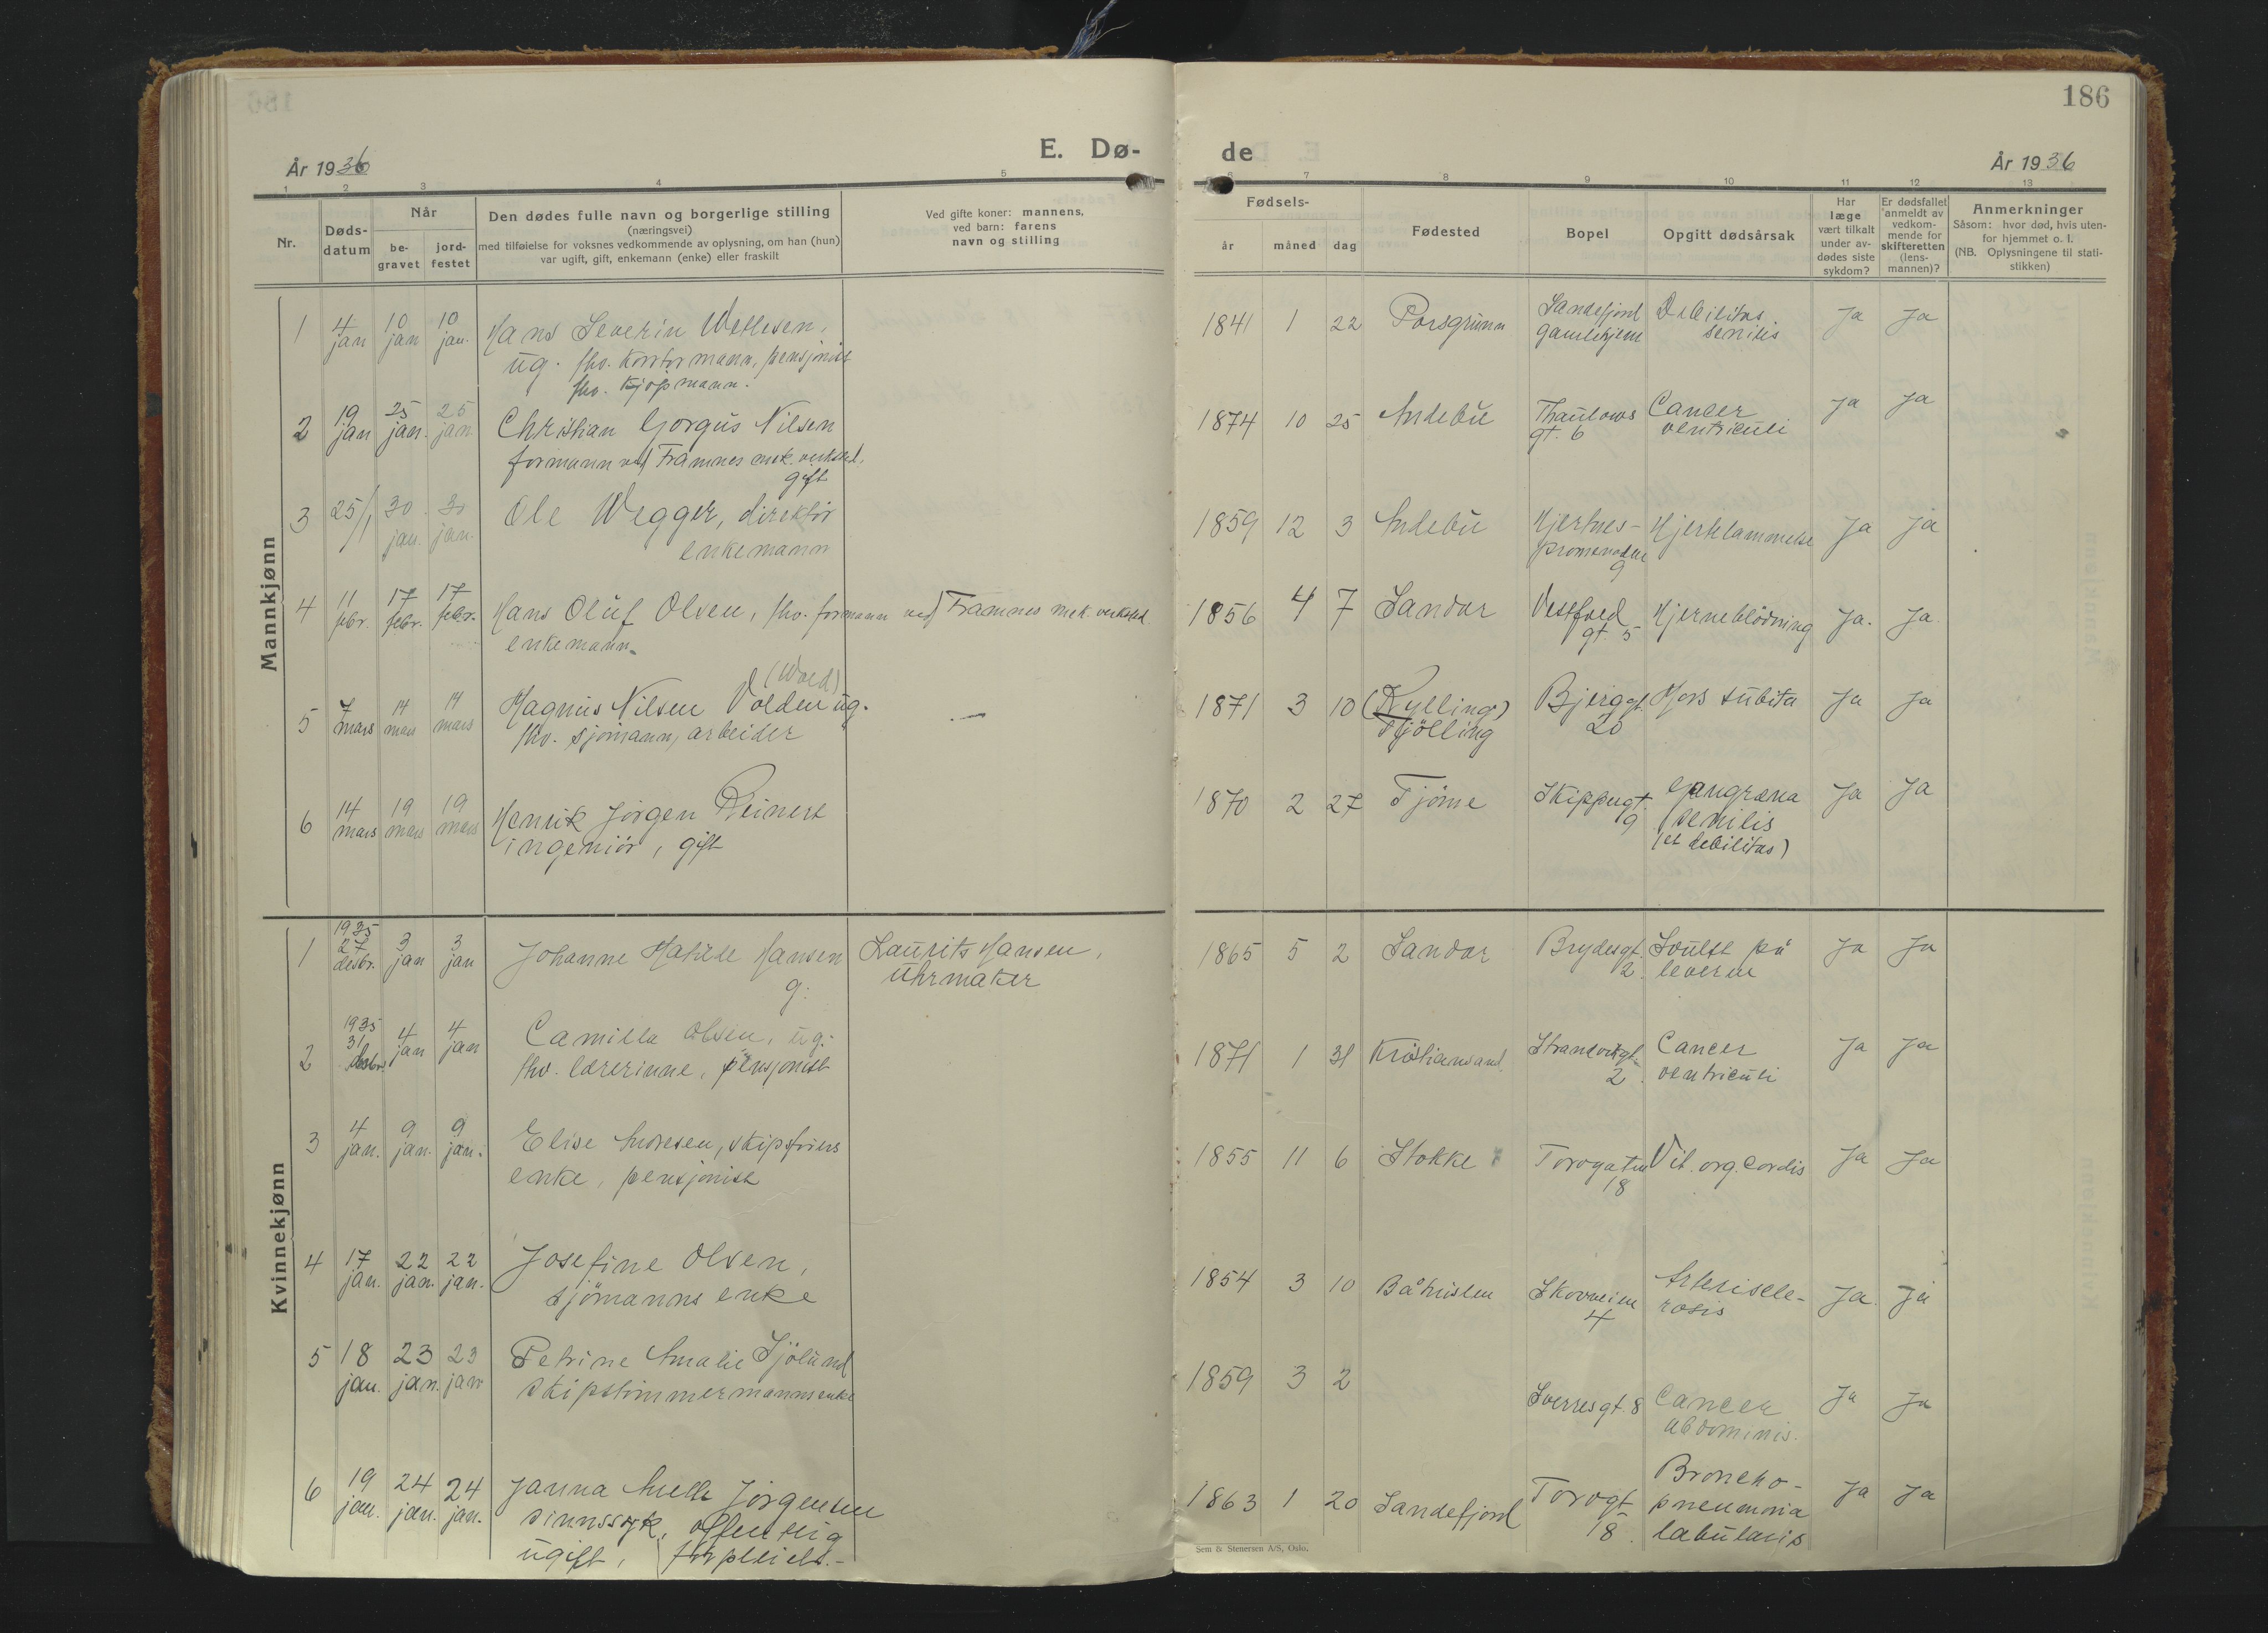 186
E. Dø-
de
År 1936
År 1936
1 2 3 4 5
6 7 8 9 10 11 12 13
Nr.
Døds-
datum
Når
be-
gravet
jord-
festet
Den dødes fulle navn og borgerlige stilling
(næringsvei)
med tilføielse for voksnes vedkommende av oplysning, om han (hun)
var ugift, gift, enkemann (enke) eller fraskilt
Ved gifte koner: mannens,
ved barn: farens
navn og stilling
Fødsels-
år måned dag
Fødested
Bopel
Opgitt dødsårsak
Har
læge
vært tilkalt
under av-
dødes siste
sykdom?
Er dødsfallet
anmeldt av
vedkom-
mende for
skifteretten
(lens-
mannen)?
Anmerkninger
Såsom: hvor død, hvis uten-
for hjemmet o. l.
(NB. Oplysningene til stati-
stikken)
Mannkjønn
1 4 10 10 Hans Severin Wettesen, 1841 1 22 Porsgrunn Sandefjord Debilitas Ja Ja
jan jan jan. ug. fhv. kontormann, pensjonist gamlehjem senilis
fhv. kjøpmann.
2 19 25 25 Christian Gorgus Nilsen 1874 10 25 Andebu Thaulows Cancer Ja Ja
jan jan. jan. formann ved Framnes mek. verksted, gt. 6 ventriculi
gift
3 25/1 30 30 Ole Wegger, direktør 1859 12 3 Andebu Hjertnes- Hjertelammelse Ja Ja
jan. jan. enkemann promenaden
9
4 11 17 17 Hans Oluf Olsen, fhv. formann ved Framnes mek. verksted. 1856 4 7 Sandar Vestfold Hjerneblödning Ja. Ja.
febr. febr. febr. enkemann. gt. 5
(Wold)
5 7 14 14 Magnus Nilsen Volden ug. — 1871 3 10 (Kylling) Bjerggt. Mors subita Ja Ja
mars mars mars fhv. sjømann, arbeider Tjölling 20
6 14 19 19 Henrik Jörgen Reinert 1870 2 27 Tjöme Skippergt. Gangræna Ja Ja
mars mars mars ingeniör, gift 9 senilis
(et debilitas)
Kvinnekjønn
1935
1 27 3 3 Johanne Matilde Hansen Laurits Hansen, 1865 5 2 Sandar Brydesgt. Svulst på Ja Ja
desbr. jan jan g. Uhrmaker 2. leveren
1935
2 31 4 4 Camilla Olsen, ug. 1871 1 31 Kristiansand. Strandvikgt. Cancer Ja Ja
desbr. jan jan fhv. lærerinne, pensjonist 2. ventriculi
3 4 9 9 Elise Andresen, skipsförers 1855 11 6 Stokke Torvgaten Vit. org. cordis Ja Ja
jan. jan. jan. enke, pensjonist 18
4 17 22 22 Josefine Olsen, 1854 3 10 Båhuslen Skovveien Arteriscle- Ja Ja
jan. jan. jan. sjömanns enke 4 rosis
5 18 23 23 Petrine Amalie Sjölund 1859 3 2 Sverresgt. 8 Cancer Ja Ja
jan. jan. jan skipstömmermanns enke abdominis.
6 19 24 24 Janna Mille Jörgensen 1863 1 20 Sandefjord Torvgt. Broncho- Ja Ja
jan. jan. jan. sinnssyk, offentlig 18. pneumonia
ugift, forpleiet.- lobularis
Sem & Stenersen A/S, Oslo.